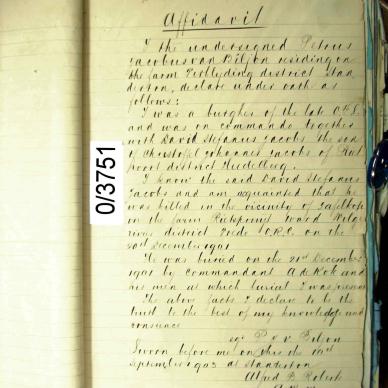 Affidavit
I the undersigned Petrus
Jacobus van Biljon residing on
the farm district Stan
derton, declare under oath as
follows:
I was a burgher of the late
and was on commando together
with David Stefanus Jacobs the son
of Christoffel Johannes Jacobs of
district Heidelberg.
I know the said David Stefanus
Jacobs and am acquainted that he
was killed in the vicinity of
on the farm ward
river district Vrede O.R.C. on the
20st December 1901
He was buried on the 21st December
1901 by Commandant A de Kok and
his men at which burial I was present
The above facts I declare to be the
truth to the best of my knowledge and
consience
sgd P v Biljon
Sworn before me on this the
September 1903 at Standerton
Alfred B
0/3751